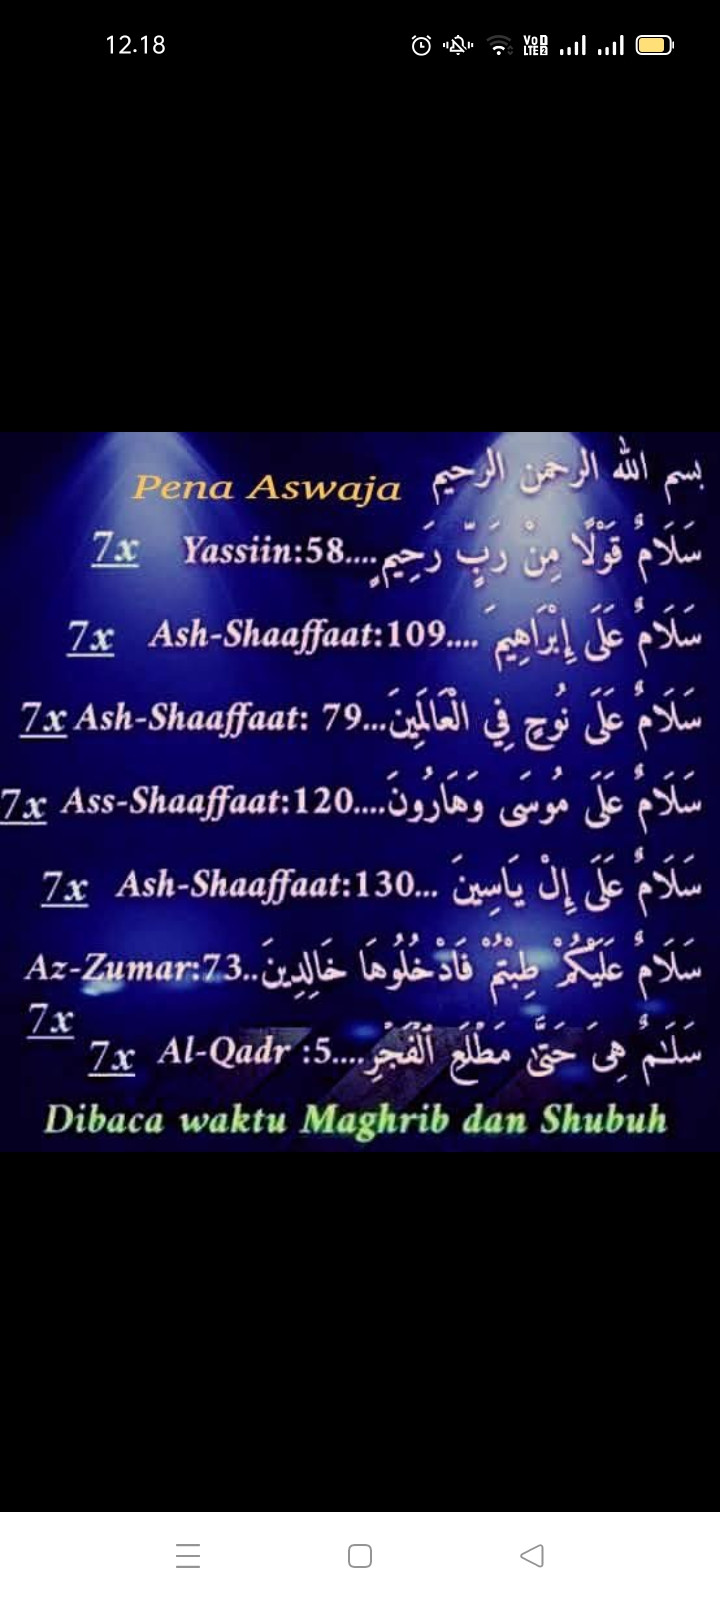 12.18
VoD LTE 2
بسم الله الرحمن الرحيم Pena Aswaja
سَلَامٌ قَوْلًا مِنْ رَبٍّ رَحِيمٍ....Yassiin:58 7x
سَلَامٌ عَلَى إِبْرَاهِيمَ ....Ash-Shaaffaat:109 7x
سَلَامٌ عَلَى نُوحٍ فِي الْعَالَمِينَ...Ash-Shaaffaat: 79 7x
سَلَامٌ عَلَى مُوسَى وَهَارُونَ....Ass-Shaaffaat:120 7x
سَلَامٌ عَلَى إِلْ يَاسِينَ ...Ash-Shaaffaat:130 7x
سَلَامٌ عَلَيْكُمْ طِبْتُمْ فَادْخُلُوهَا خَالِدِينَ..Az-Zumar:73
7x
سَلَٰمٌ هِىَ حَتَّىٰ مَطْلَعِ ٱلْفَجْرِ....Al-Qadr :5 7x
Dibaca waktu Maghrib dan Shubuh